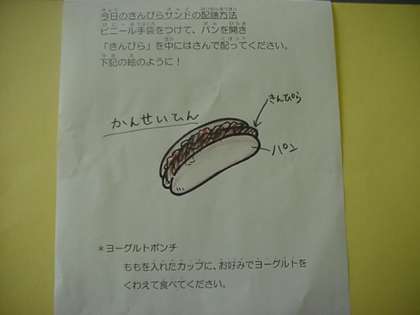 今日のきんぴらサンドの配膳方法
ビニール手袋をつけて、パンを開き
「きんぴら」を中にはさんで配ってください。
下記の絵のように！
きんぴら
かんせいひん
パン
＊ヨーグルトポンチ
ももを入れたカップに、お好みでヨーグルトを
くわえて食べてください。